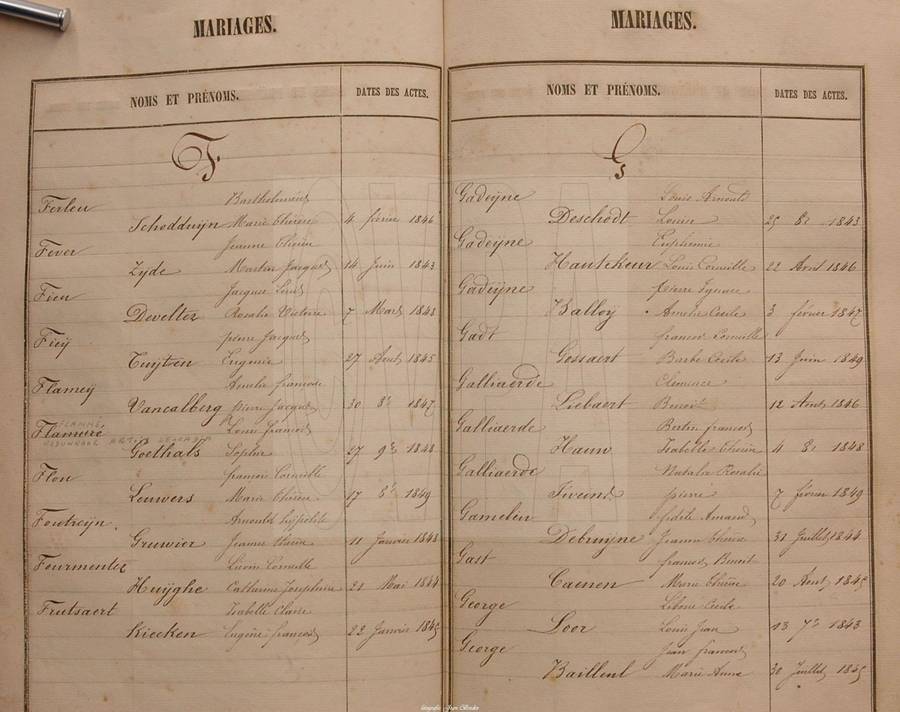 MARIAGES.
NOMS ET PRÉNOMS. DATES DES ACTES.
F.
Ferleu Barthelemi
Schodduijn Marie Thérèse 4 février 1846
Fever Jeanne Thérèse
Zijde Martin Jacques 14 Juin 1843
Fieu Jacques Louis
Develter Rosalie Victoire 7 Mars 1848
Ficij pierre Jacques
Tuijten Eugenie 27 Aout 1845
Flameij Amelie francoise
Vancalberg pierre Jacques 30 8e 1847
Louis francois
Goethals Sophie 27 9e 1848
Flon francois Corneille
Leuwers Marie Thérèse 17 8e 1849
Foutreijn. Arnould hippolite
Gruwier Jeanne Thérèse 11 Janvier 1848
Fourmentez Livin Corneille
Huijghe Catherine Josephine 21 Mai 1844
Frutsaert Isabelle Claire
Kiecken Eugène francois 22 Janvier 1845
MARIAGES.
NOMS ET PRÉNOMS. DATES DES ACTES.
G
Gadeijne Louis Arnould
Deschodt Louise 25 8e 1843
Gadeijne Euphemie
Hautekeur Louis Corneille 22 Avril 1846
Gadeijne pierre Ignace
Balloij Amelie Cecile 3 février 1847
Gadt francois Corneille
Gossaert Barbe Cecile 13 Juin 1849
Galliaerde Clemence
Liebaert Benoit 12 Aout 1846
Galliaerde Bertin francois
Hauw Isabelle Thérèse 4 8e 1848
Galliaerde Natalie Rosalie
Tiveind pierre 7 février 1849
Gamelin fidele Amand
Debruijne Jeanne Thérèse 31 Juillet 1844
Gast francois Benoit
Caenen Marie Thérèse 20 Aout 1845
George Libérie Cecile
Loor Louis Jean 13 7e 1843
George Jean francois
Bailleul Marie Anne 30 Juillet 1845